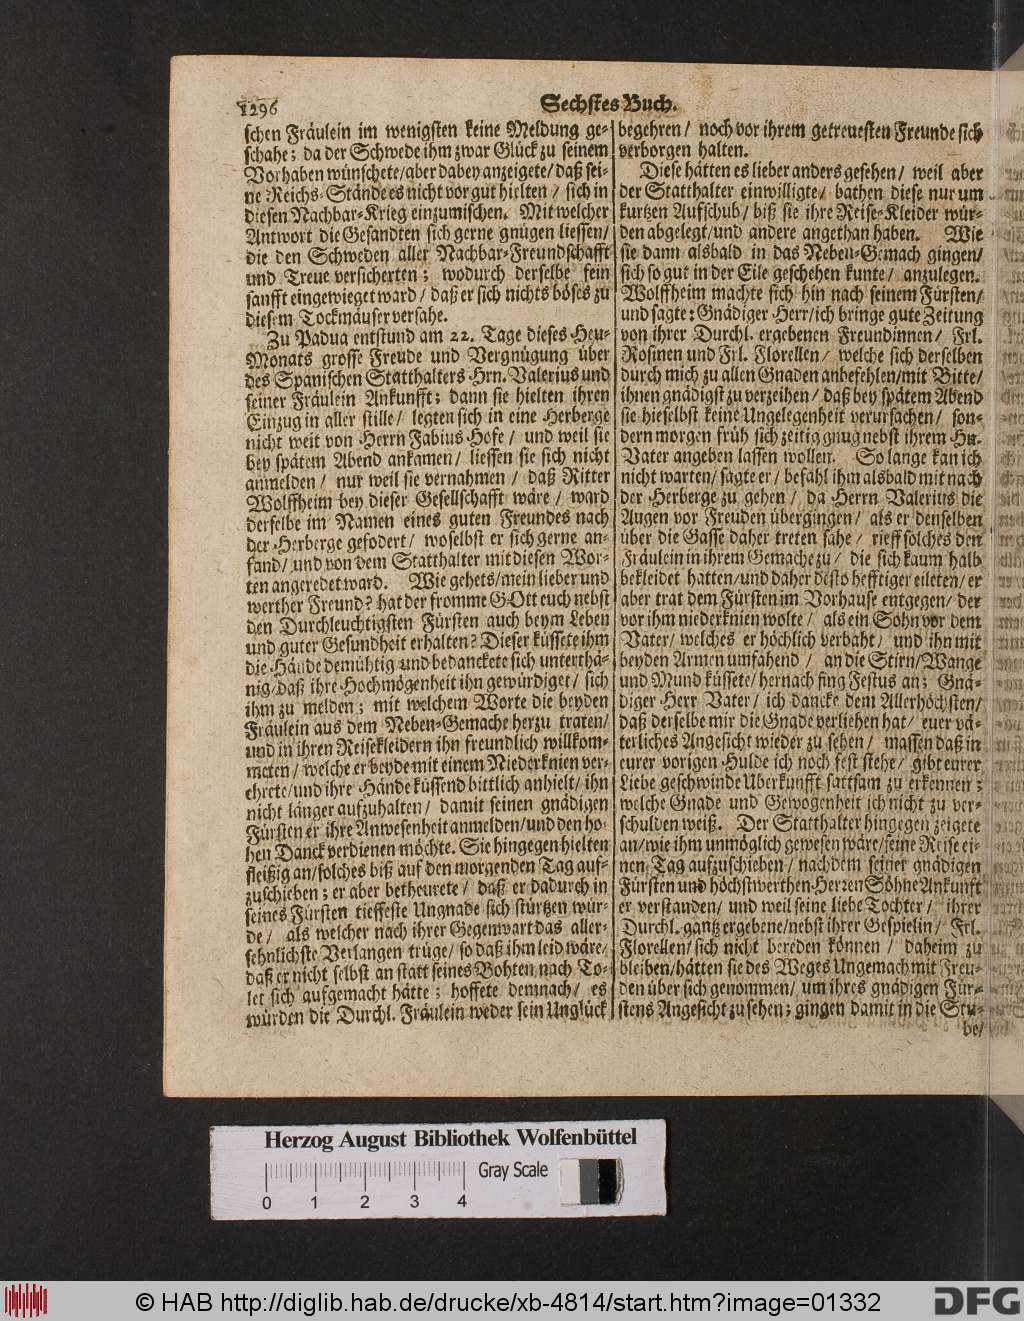 1296
Sechstes Buch.
schen Fräulein im wenigsten keine Meldung ge-
schahe; da der Schwede ihm zwar Glück zu seinem
Vorhaben wünschete/aber dabey anzeigete/daß sei-
ne Reichs-Stände es nicht vor gut hielten/ sich in
diesen Nachbar-Krieg einzumischen. Mit welcher
Antwort die Gesandten sich gerne gnügen liessen/
die den Schweden aller Nachbar-Freundschafft
und Treue versicherten; wodurch derselbe fein
sanfft eingewieget ward/ daß er sich nichts böses zu
diesem Tockmäuser versahe.
Zu Padua entstund am 22. Tage dieses Heu-
Monats grosse Freude und Vergnügung über
des Spanischen Statthalters Hrn. Valerius und
seiner Fräulein Ankunfft; dann sie hielten ihren
Einzug in aller stille/ legten sich in eine Herberge
nicht weit von Herrn Fabius Hofe/ und weil sie
bey spätem Abend ankamen/ liessen sie sich nicht
anmelden/ nur weil sie vernahmen/ daß Ritter
Wolffheim bey dieser Gesellschafft wäre/ ward
derselbe im Namen eines guten Freundes nach
der Herberge gefodert/ woselbst er sich gerne an-
fand/ und von dem Statthalter mit diesen Wor-
ten angeredet ward. Wie gehets/mein lieber und
werther Freund? hat der fromme GOtt euch nebst
den Durchleuchtigsten Fürsten auch beym Leben
und guter Gesundheit erhalten? Dieser küssete ihm
die Hände demühtig und bedanckete sich unterthä-
nig/daß ihre Hochmögenheit ihn gewürdiget/ sich
ihm zu melden; mit welchem Worte die beyden
Fräulein aus dem Neben-Gemache herzu traten/
und in ihren Reisekleidern ihn freundlich willkom-
meten/ welche er beyde mit einem Niederknien ver-
ehrete/und ihre Hände küssend bittlich anhielt/ ihn
nicht länger aufzuhalten/ damit seinen gnädigen
Fürsten er ihre Anwesenheit anmelden/und den ho-
hen Danck verdienen möchte. Sie hingegen hielten
fleißig an/solches biß auf den morgenden Tag auf-
zuschieben; er aber betheurete/ daß er dadurch in
seines Fürsten tieffeste Ungnade sich stürtzen wür-
de/ als welcher nach ihrer Gegenwart das aller-
sehnlichste Verlangen trüge/ so daß ihm leid wäre/
daß er nicht selbst an statt seines Bohten nach To-
let sich aufgemacht hätte; hoffete demnach/ es
würden die Durchl. Fräulein weder sein Unglück
begehren/ noch vor ihrem getreuesten Freunde sich
verborgen halten.
Diese hätten es lieber anders gesehen/ weil aber
der Statthalter einwilligte/ bathen diese nur um
kurtzen Aufschub/ biß sie ihre Reise-Kleider wür-
den abgelegt/und andere angethan haben. Wie
sie dann alsbald in das Neben-Gemach gingen/
sich so gut in der Eile geschehen kunte/ anzulegen.
Wolffheim machte sich hin nach seinem Fürsten/
und sagte: Gnädiger Herr/ich bringe gute Zeitung
von ihrer Durchl. ergebenen Freundinnen/ Frl.
Rosinen und Frl. Florellen/ welche sich derselben
durch mich zu allen Gnaden anbefehlen/mit Bitte/
ihnen gnädigst zu verzeihen/ daß bey spätem Abend
sie hieselbst keine Ungelegenheit verursachen/ son-
dern morgen früh sich zeitig gnug nebst ihrem Hn.
Vater angeben lassen wollen. So lange kan ich
nicht warten/ sagte er/ befahl ihm alsbald mit nach
der Herberge zu gehen/ da Herrn Valerius die
Augen vor Freuden übergingen/ als er denselben
über die Gasse daher treten sahe/ rieff solches den
Fräulein in ihrem Gemache zu/ die sich kaum halb
bekleidet hatten/und daher desto hefftiger eileten/ er
aber trat dem Fürsten im Vorhause entgegen/ der
vor ihm niederknien wolte/ als ein Sohn vor dem
Vater/ welches er höchlich verbaht/ und ihn mit
beyden Armen umfahend/ an die Stirn/Wange
und Mund küssete/ hernach fing Festus an; Gnä-
diger Herr Vater/ ich dancke dem Allerhöchsten/
daß derselbe mir die Gnade verliehen hat/ euer vä-
terliches Angesicht wieder zu sehen/ massen daß in
eurer vorigen Hulde ich noch fest stehe/ gibt eurer
Liebe geschwinde Uberkunfft sattsam zu erkennen;
welche Gnade und Gewogenheit ich nicht zu ver-
schulden weiß. Der Statthalter hingegen zeigete
an/wie ihm unmöglich gewesen wäre/seine Reise ei-
nen Tag aufzuschieben/ nachdem seiner gnädigen
Fürsten und höchstwerthen Herren Söhne Ankunft
er verstanden/ und weil seine liebe Tochter/ ihrer
Durchl. gantz ergebene/nebst ihrer Gespielin/ Frl.
Florellen/ sich nicht bereden können/ daheim zu
bleiben/hätten sie des Weges Ungemach mit Freu-
den über sich genommen/ um ihres gnädigen Für-
stens Angesicht zu sehen; gingen damit in die Stu-
be/
Herzog August Bibliothek Wolfenbüttel
Gray Scale
0 1 2 3 4
© HAB http://diglib.hab.de/drucke/xb-4814/start.htm?image=01332
DFG